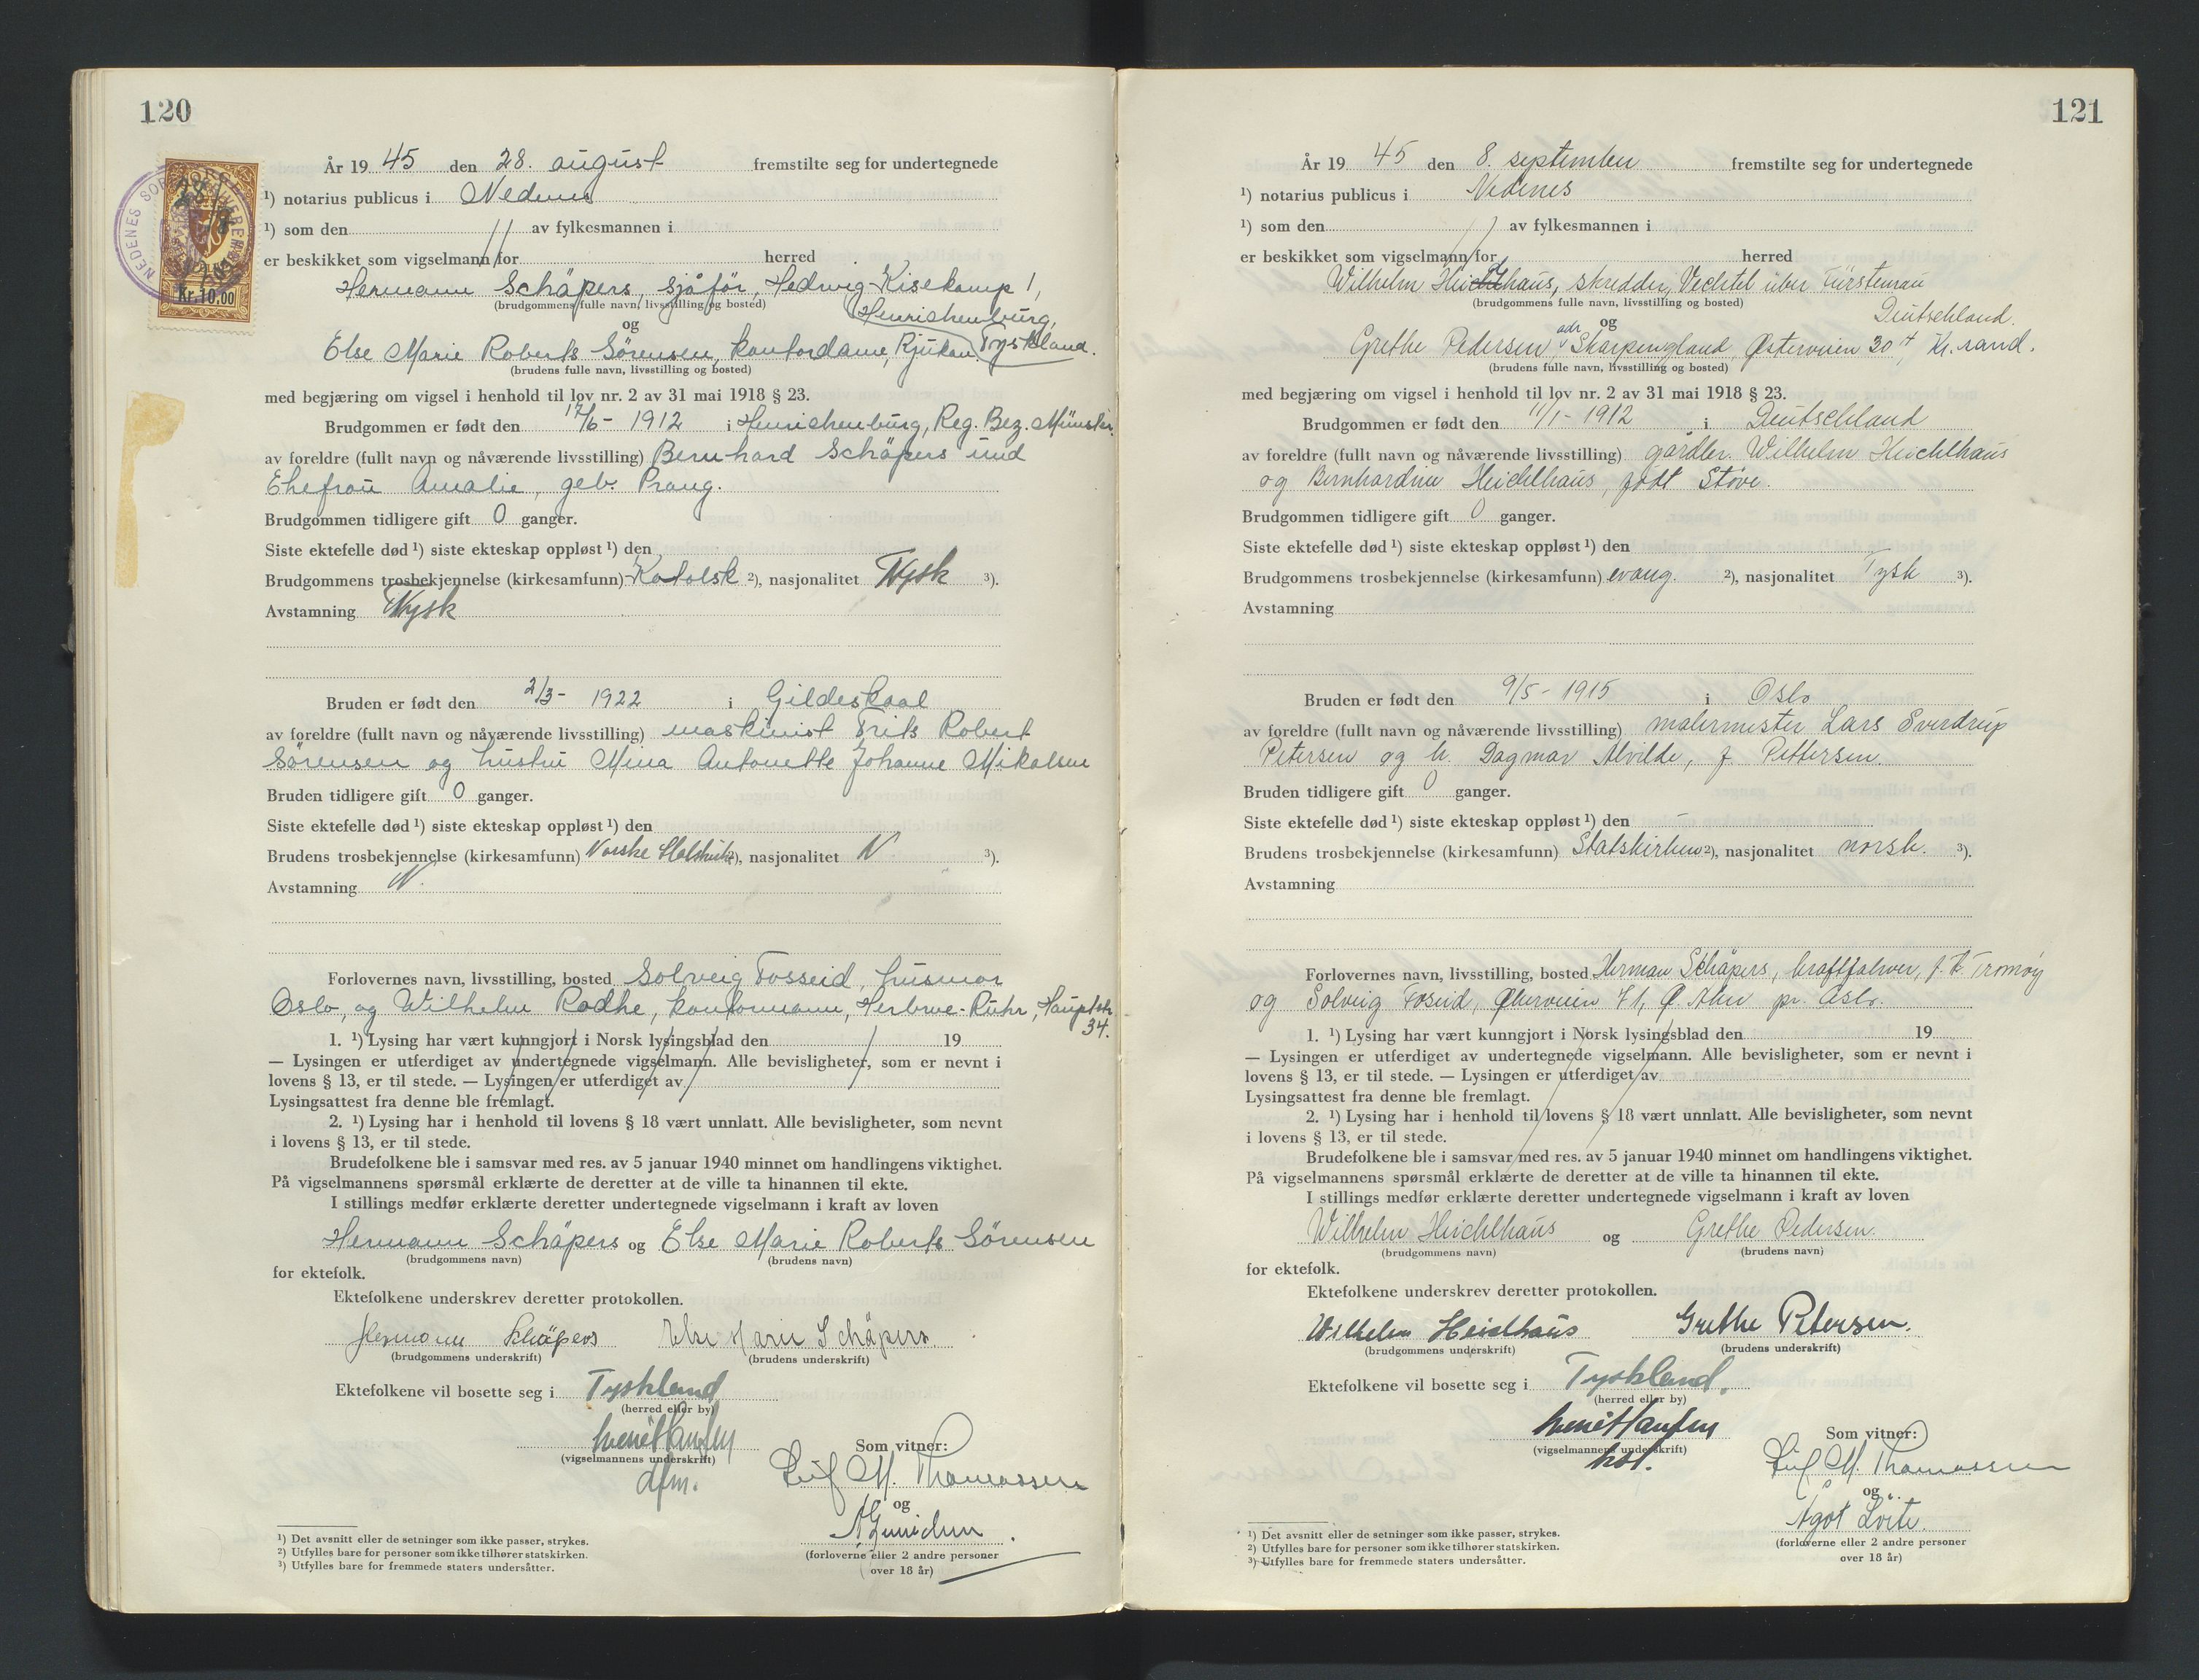 120
År 19 45 den 28. august fremstilte seg for undertegnede
¹) notarius publicus i Nedenes
¹) som den av fylkesmannen i
er beskikket som vigselmann for herred
Hermann Schäpers, sjåfør, Hedwig-Kisekamp 1,
(brudgommens fulle navn, livsstilling og bosted)
Henrichenburg,
og
Tyskland.
Else Marie Roberts Sörensen, kontordame, Rjukan.
(brudens fulle navn, livsstilling og bosted)
med begjæring om vigsel i henhold til lov nr. 2 av 31 mai 1918 § 23.
Brudgommen er født den 17/6- 1912 i Henrichenburg, Reg. Bez. Münster.
av foreldre (fullt navn og nåværende livsstilling) Bernhard Schäpers und
Ehefrau Amalie, geb. Prang.
Brudgommen tidligere gift 0 ganger.
Siste ektefelle død ¹) siste ekteskap oppløst ¹) den
Brudgommens trosbekjennelse (kirkesamfunn) Katolsk ²), nasjonalitet Tysk ³).
Avstamning Tysk
Bruden er født den 2/3- 1922 i Gildeskaal
av foreldre (fullt navn og nåværende livsstilling) maskinist Frits Robert
Sörensen og hustru Mina Antonette Johanne Mikalsen
Bruden tidligere gift 0 ganger.
Siste ektefelle død ¹) siste ekteskap oppløst ¹) den
Brudens trosbekjennelse (kirkesamfunn) Norske Statskirke ²), nasjonalitet N ³).
Avstamning N.
Forlovernes navn, livsstilling, bosted Solveig Fosseid, husmor
Oslo, og Wilhelm Rodhe, kontormann, Herbrue-Ruhr, Hauptstr.
34.
1. ¹) Lysing har vært kunngjort i Norsk lysingsblad den 19
— Lysingen er utferdiget av undertegnede vigselmann. Alle bevisligheter, som er nevnt i
lovens § 13, er til stede. — Lysingen er utferdiget av
Lysingsattest fra denne ble fremlagt.
2. ¹) Lysing har i henhold til lovens § 18 vært unnlatt. Alle bevisligheter, som nevnt
i lovens § 13, er til stede.
Brudefolkene ble i samsvar med res. av 5 januar 1940 minnet om handlingens viktighet.
På vigselmannens spørsmål erklærte de deretter at de ville ta hinannen til ekte.
I stillings medfør erklærte deretter undertegnede vigselmann i kraft av loven
Hermann Schäpers og Else Marie Roberts Sörensen
(brudgommens navn) (brudens navn)
for ektefolk.
Ektefolkene underskrev deretter protokollen.
Hermann Schäpers Else Marie Schäpers.
(brudgommens underskrift) (brudens underskrift)
Ektefolkene vil bosette seg i Tyskland
(herred eller by)
Som vitner:
(vigselmannens underskrift)
dfm.
Leif M. Thomassen
og
(forloverne eller 2 andre personer
over 18 år)
¹) Det avsnitt eller de setninger som ikke passer, strykes.
²) Utfylles bare for personer som ikke tilhører statskirken.
³) Utfylles bare for fremmede staters undersåtter.
Kr. 10.00
121
År 19 45 den 8. september fremstilte seg for undertegnede
¹) notarius publicus i Nedenes
¹) som den av fylkesmannen i
er beskikket som vigselmann for herred
Wilhelm Heichlhaus, skredder, Vechtel über Fürstenau
(brudgommens fulle navn, livsstilling og bosted)
Deutschland.
og
adr
Grethe Pedersen, Skarpengland, Østerveien 30 II, Kr.sand.
(brudens fulle navn, livsstilling og bosted)
med begjæring om vigsel i henhold til lov nr. 2 av 31 mai 1918 § 23.
Brudgommen er født den 11/1- 1912 i Deutschland
av foreldre (fullt navn og nåværende livsstilling) gårdbr. Wilhelm Heichlhaus
og Bernhardine Heichlhaus, født Stöve.
Brudgommen tidligere gift 0 ganger.
Siste ektefelle død ¹) siste ekteskap oppløst ¹) den
Brudgommens trosbekjennelse (kirkesamfunn) evang. ²), nasjonalitet Tysk ³).
Avstamning
Bruden er født den 9/5- 1915 i Oslo
av foreldre (fullt navn og nåværende livsstilling) malermester Lars Sverdrup
Petersen og h. Dagmar Alvilde, f. Pettersen.
Bruden tidligere gift 0 ganger.
Siste ektefelle død ¹) siste ekteskap oppløst ¹) den –
Brudens trosbekjennelse (kirkesamfunn) Statskirken ²), nasjonalitet norsk. ³).
Avstamning
Forlovernes navn, livsstilling, bosted Herman Schäpers, kraftfahrer, f.t. Tromøy
og Solveig Foseid, Økerveien 71, Ø. Aker pr. Oslo.
1. ¹) Lysing har vært kunngjort i Norsk lysingsblad den 19
— Lysingen er utferdiget av undertegnede vigselmann. Alle bevisligheter, som er nevnt i
lovens § 13, er til stede. — Lysingen er utferdiget av
Lysingsattest fra denne ble fremlagt.
2. ¹) Lysing har i henhold til lovens § 18 vært unnlatt. Alle bevisligheter, som nevnt
i lovens § 13, er til stede.
Brudefolkene ble i samsvar med res. av 5 januar 1940 minnet om handlingens viktighet.
På vigselmannens spørsmål erklærte de deretter at de ville ta hinannen til ekte.
I stillings medfør erklærte deretter undertegnede vigselmann i kraft av loven
Wilhelm Heichlhaus og Grethe Pedersen.
(brudgommens navn) (brudens navn)
for ektefolk.
Ektefolkene underskrev deretter protokollen.
Wilhelm Heidlhaus Grethe Petersen.
(brudgommens underskrift) (brudens underskrift)
Ektefolkene vil bosette seg i Tyskland.
(herred eller by)
Som vitner:
(vigselmannens underskrift)
Leif M. Thomassen
og
Ågot Löite.
(forloverne eller 2 andre personer
over 18 år)
¹) Det avsnitt eller de setninger som ikke passer, strykes.
²) Utfylles bare for personer som ikke tilhører statskirken.
³) Utfylles bare for fremmede staters undersåtter.